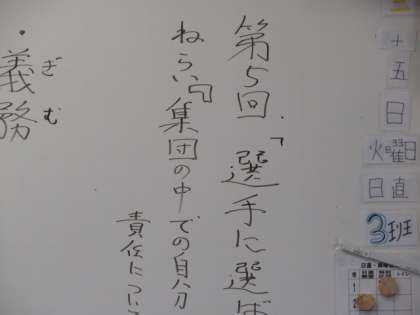 十
五
日
火曜日
日直
3班
第5回「選手に選ば
ねらい『集団の中での自分
責任につい
・義務
ぎむ